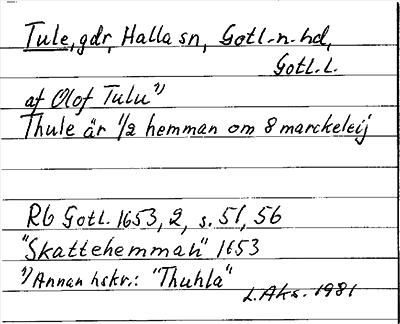 Tule, gdr, Halla sn, Gotl. n. hd,
Gotl. l.
af Olof Tulu 1)
Thule är 1/2 hemman om 8 marckeleij
Rb Gotl. 1653, 2, s. 51, 56
"Skattehemman" 1653
1) Annan hskr.: "Thuhla"
L. Aks. 1981